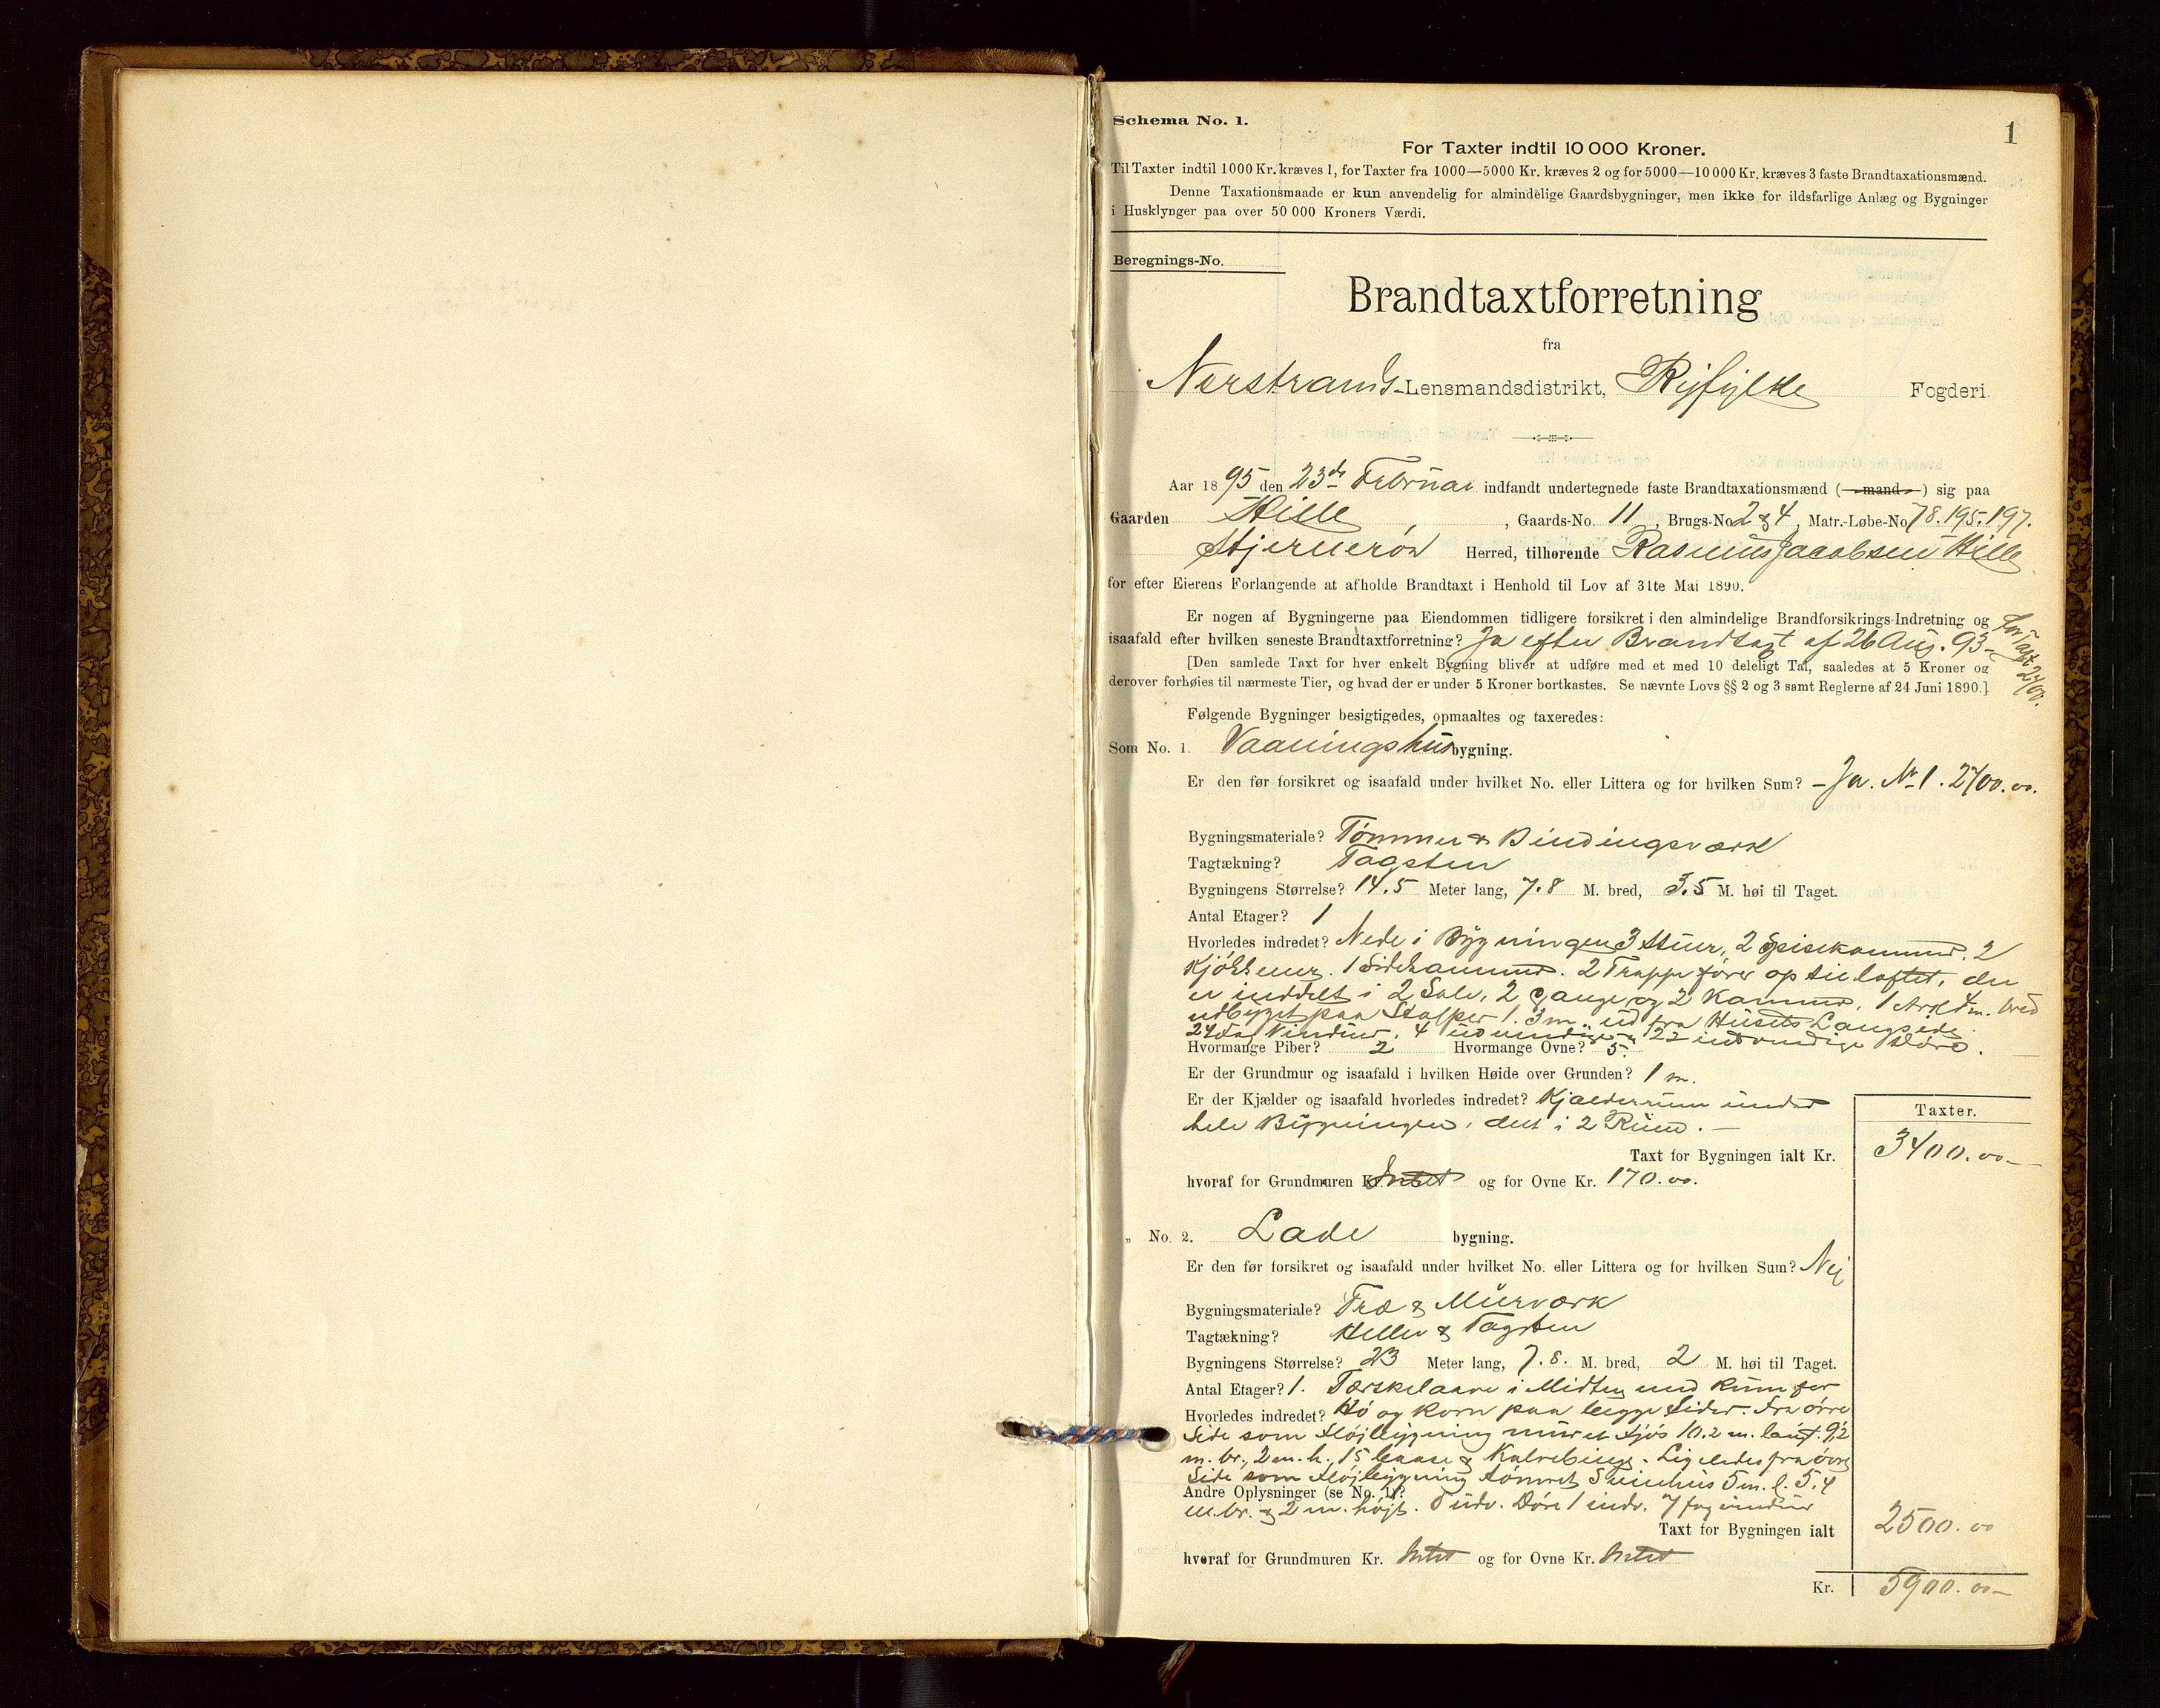 Schema No. 1.
1
For Taxter indtil 10 000 Kroner.
Til Taxter indtil 1000 Kr. kræves 1, for Taxter fra 1000—5000 Kr. kræves 2 og for 5000—10 000 Kr. kræves 3 faste Brandtaxationsmænd.
Denne Taxationsmaade er kun anvendelig for almindelige Gaardsbygninger, men ikke for ildsfarlige Anlæg og Bygninger
i Husklynger paa over 50 000 Kroners Værdi.
Beregnings-No.
Brandtaxtforretning
fra
Nerstrands-Lensmandsdistrikt, Ryfylke Fogderi.
Aar 1895 den 23de Februar indfandt undertegnede faste Brandtaxationsmænd (—mand—) sig paa
Gaarden Hille, Gaards-No. 11, Brugs-No. 2 & 4, Matr.-Løbe-No 78.195.197.
Stjernerøn Herred, tilhørende Rasmus Jacobsen Hille
for efter Eierens Forlangende at afholde Brandtaxt i Henhold til Lov af 31te Mai 1890.
Er nogen af Bygningerne paa Eiendommen tidligere forsikret i den almindelige Brandforsikrings-Indretning og
isaafald efter hvilken seneste Brandtaxtforretning? Ja efter Brandtaxt af 26 Aug. 93 –
for Taxt 2700.
[Den samlede Taxt for hver enkelt Bygning bliver at udføre med et med 10 deleligt Tal, saaledes at 5 Kroner og
derover forhøies til nærmeste Tier, og hvad der er under 5 Kroner bortkastes. Se nævnte Lovs §§ 2 og 3 samt Reglerne af 24 Juni 1890.]
Følgende Bygninger besigtigedes, opmaaltes og taxeredes:
Som No. 1. Vaaningshusbygning.
Er den før forsikret og isaafald under hvilket No. eller Littera og for hvilken Sum? – Ja. No 1. 2700.00.
Bygningsmateriale? Tømmer & Bindingsværk
Tagtækning? Tagsten
Bygningens Størrelse? 14.5 Meter lang, 7.8 M. bred, 3.5 M. høi til Taget.
Antal Etager? 1
Hvorledes indredet? Nede i Bygningen 3 Stuer, 2 Spisekammer, 2
Kjøkkener. 1 Sidekammer. 2 Trapper fører op til loftet, der
er inddelt i 2 Sale, 2 Gange og 2 Kammer, 1 Ark 4 m. bred
udbygget paa Stolper 1.3 m. ud fra Husets Langside.
24 Fag Vinduer, 4 udvendige & 22 indvendige Døre.
Hvormange Piber? 2 Hvormange Ovne? 5.
Er der Grundmur og isaafald i hvilken Høide over Grunden? 1 m.
Er der Kjælder og isaafald hvorledes indredet? Kjælderrum under
hele Bygningen, delt i 2 Rum. –
Taxter.
Taxt for Bygningen ialt Kr. 3400.00–
hvoraf for Grundmuren Kr. Intet og for Ovne Kr. 170.00.
„ No. 2. Lade bygning.
Er den før forsikret og isaafald under hvilket No. eller Littera og for hvilken Sum? Nei
Bygningsmateriale? Træ & Murværk
Tagtækning? Heller & Tagsten
Bygningens Størrelse? 23 Meter lang, 7.8. M. bred, 2 M. høi til Taget.
Antal Etager? 1. Tærskelaave i Midten med Rum for
Hvorledes indredet? Hø og Korn paa begge Sider. Fra øvre
Side som Fløjbygning muret Fjøs 10.2 m. langt. 9.2
m. br., 2 m. h., 15 baase & Kalvebinge. Ligeledes fra øvre
Side som Fløjbygning tømret Svinehus 5 m. l. 5.4
Andre Oplysninger (se No. 1)?
m. br. & 2 m. højt. udv. Døre 1 indv. 7 fag vinduer
Taxt for Bygningen ialt 2500.00
hvoraf for Grundmuren Kr. Intet og for Ovne Kr. Intet
Kr. 5900.00–